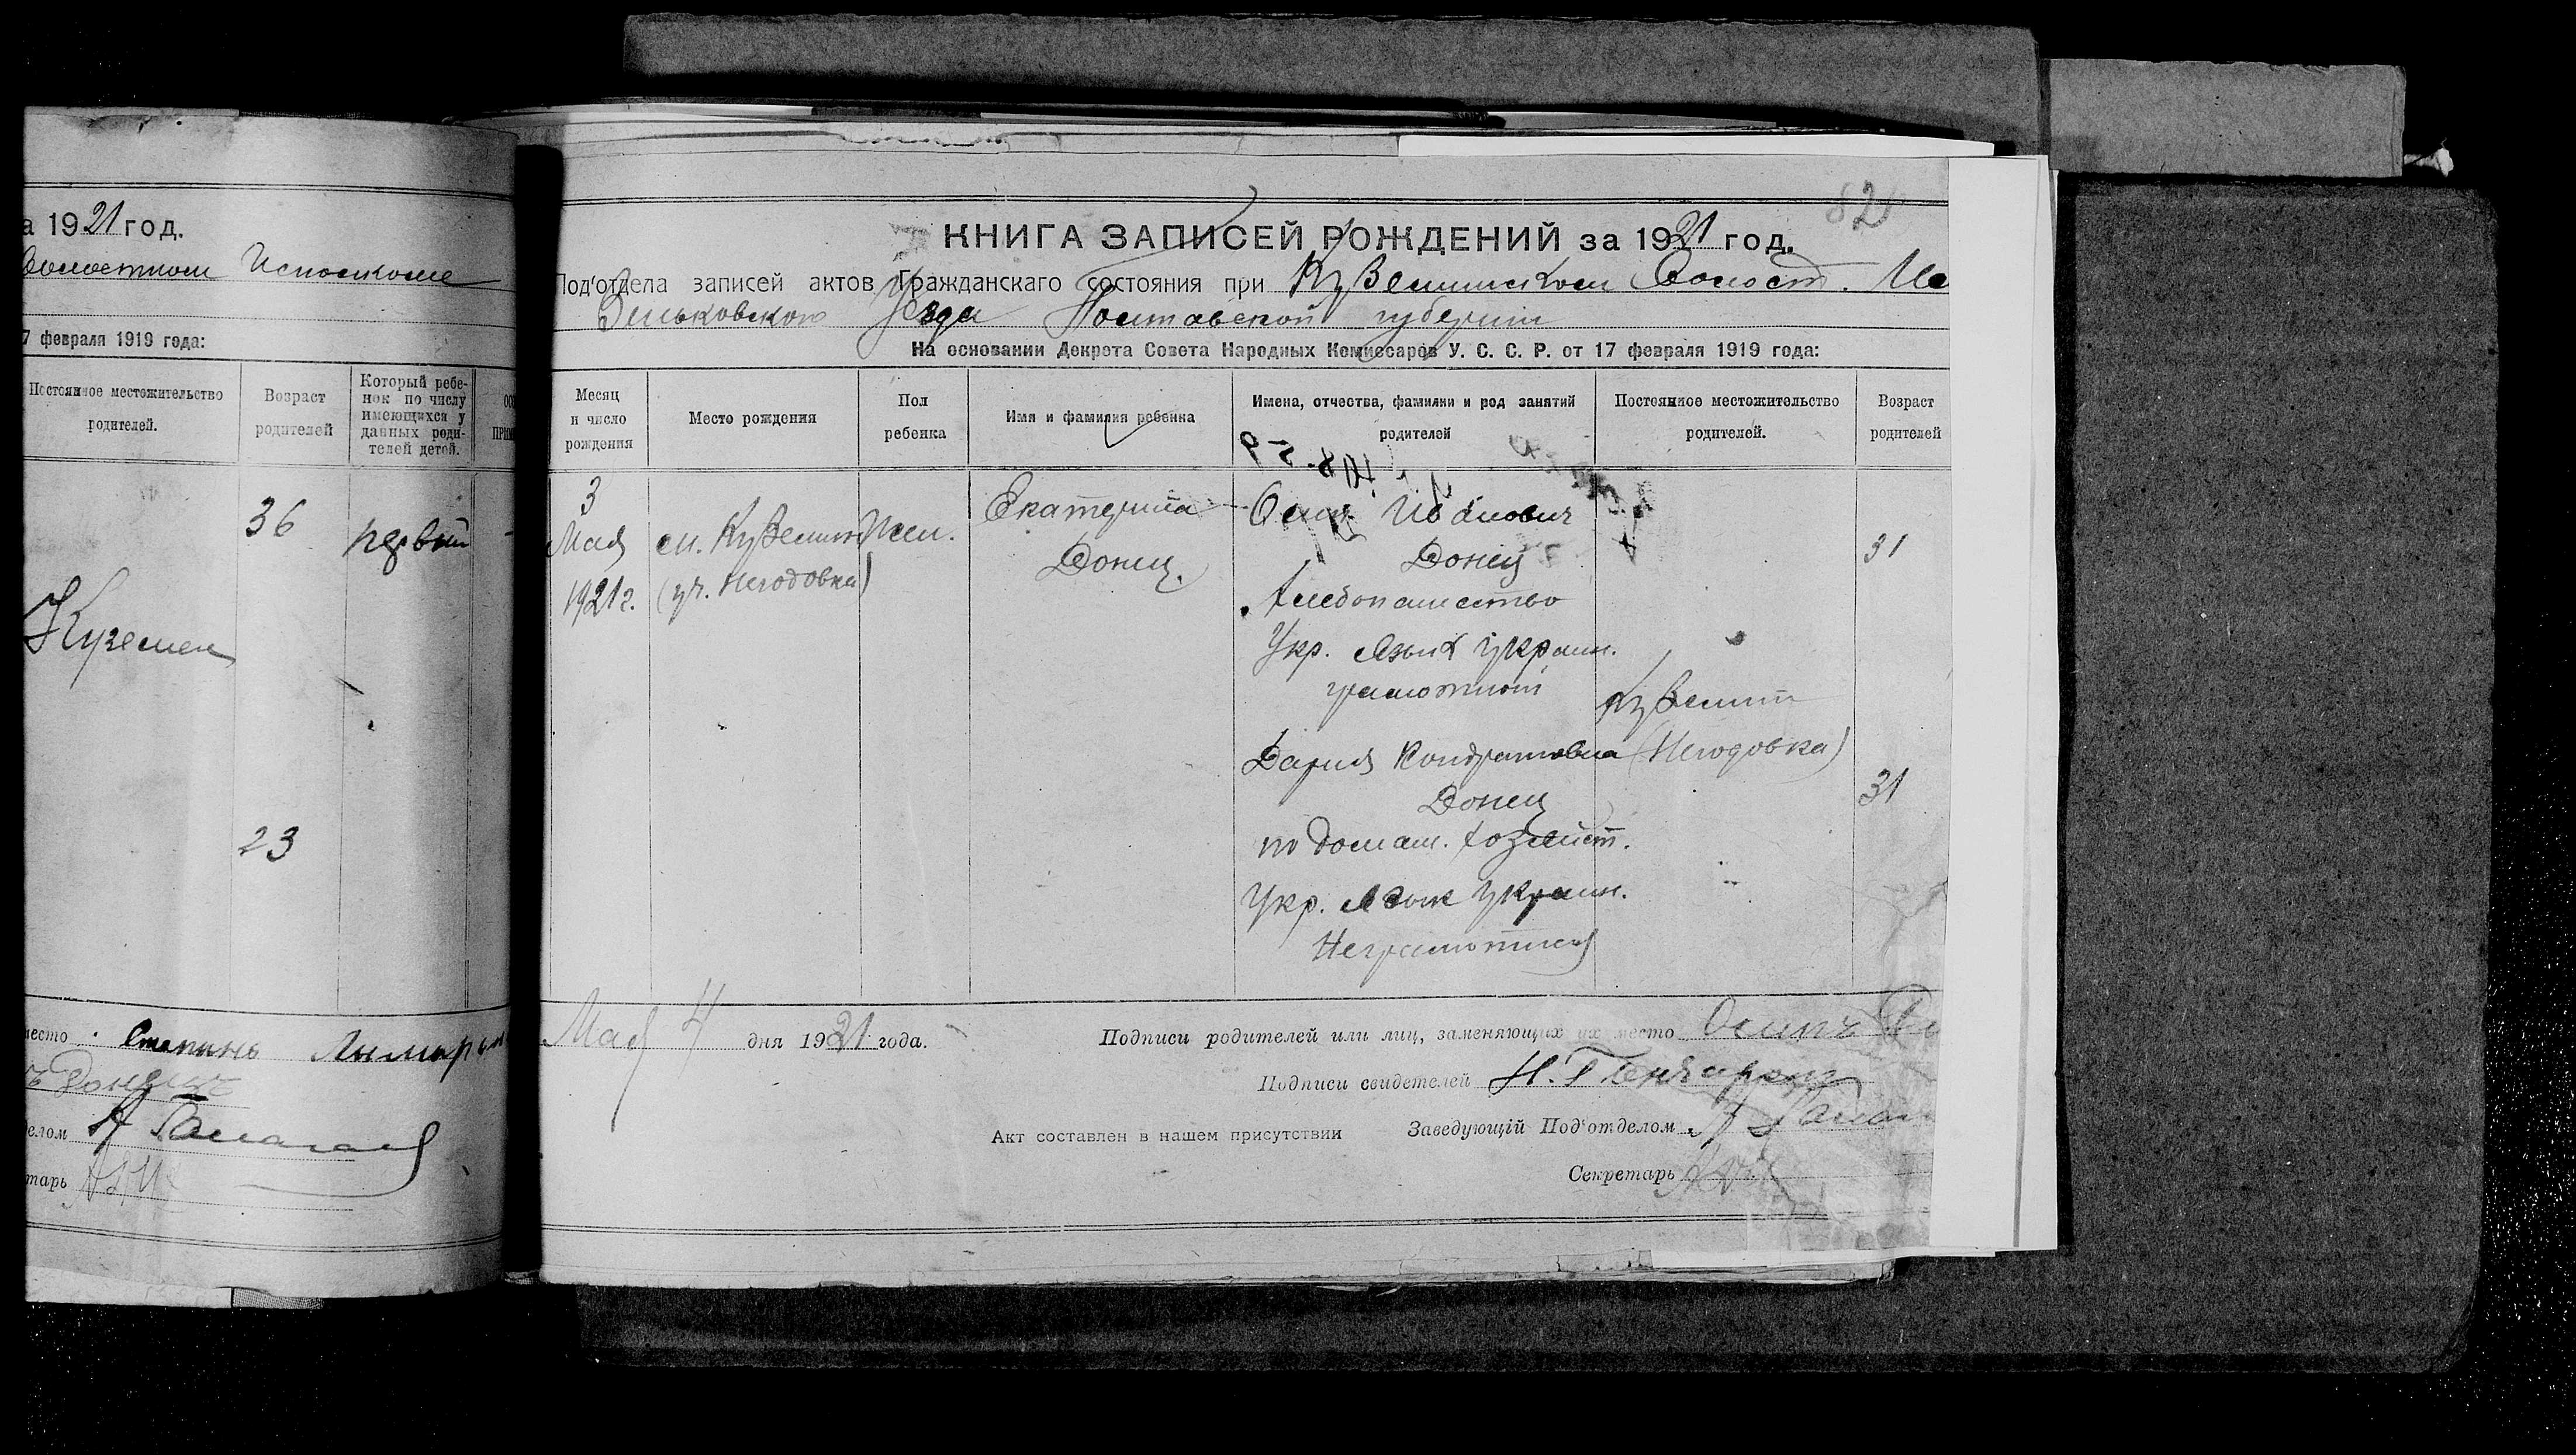 а 1921 год.
Волостном Исполкоме
7 февраля 1919 года:
Постоянное местожительство родителей.
Возраст родителей
Который ребе-
нок по числу
имеющихся у
данных роди-
телей детей.
36
первый
Куземен
23
место Степанъ
елом
тарь
82
КНИГА ЗАПИСЕЙ РОЖДЕНИЙ за 1921 год.
Под'отдела записей актов Гражданскаго состояния при Куземинском Волост. Ис
Зеньковского Уезда Полтавской губернии
На основании Декрета Совета Народных Комиссаров У. С. С. Р. от 17 февраля 1919 года:
Месяц
и число
рождения
Место рождения
Пол
ребенка
Имя и фамилия ребенка
Имена, отчества, фамилии и род занятий
родителей
Постоянное местожительство
родителей.
Возраст
родителей
3
Мая
1921 г.
м. Куземин
Жен.
Екатерина
Донец.
Осип Иванович
Донец
Хлебопашество
Укр. язык украин.
грамотный
31
Куземин
Дария Кондратовна
Донец
по домаш. хозяйст.
Укр. язык украин.
Неграмотная
31
Мая 4 дня 1921 года.
Подписи родителей или лиц, заменяющих их место Осипъ
Подписи свидетелей Н.
Акт составлен в нашем присутствии
Заведующій Под'отделом
Секретарь